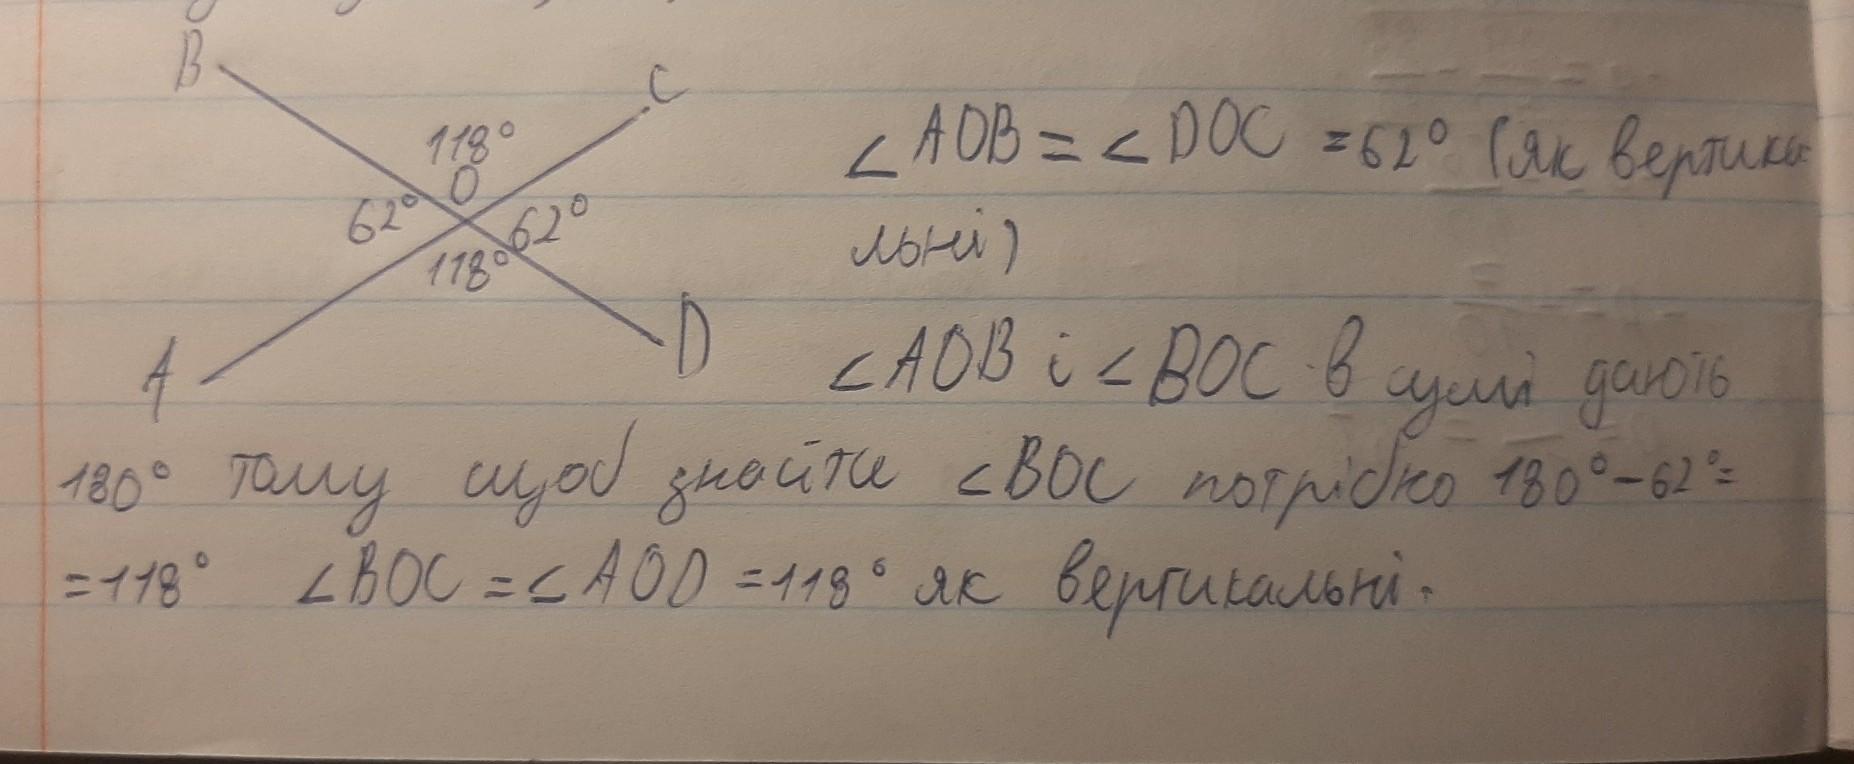 B
C
118°
O
62°
62°
118°
A
D
∠AOB = ∠DOC = 62° (як вертика-
льні)
∠AOB і ∠BOC в сумі дають
180° тому щоб знайти ∠BOC потрібно 180° - 62° =
= 118° ∠BOC = ∠AOD = 118° як вертикальні.